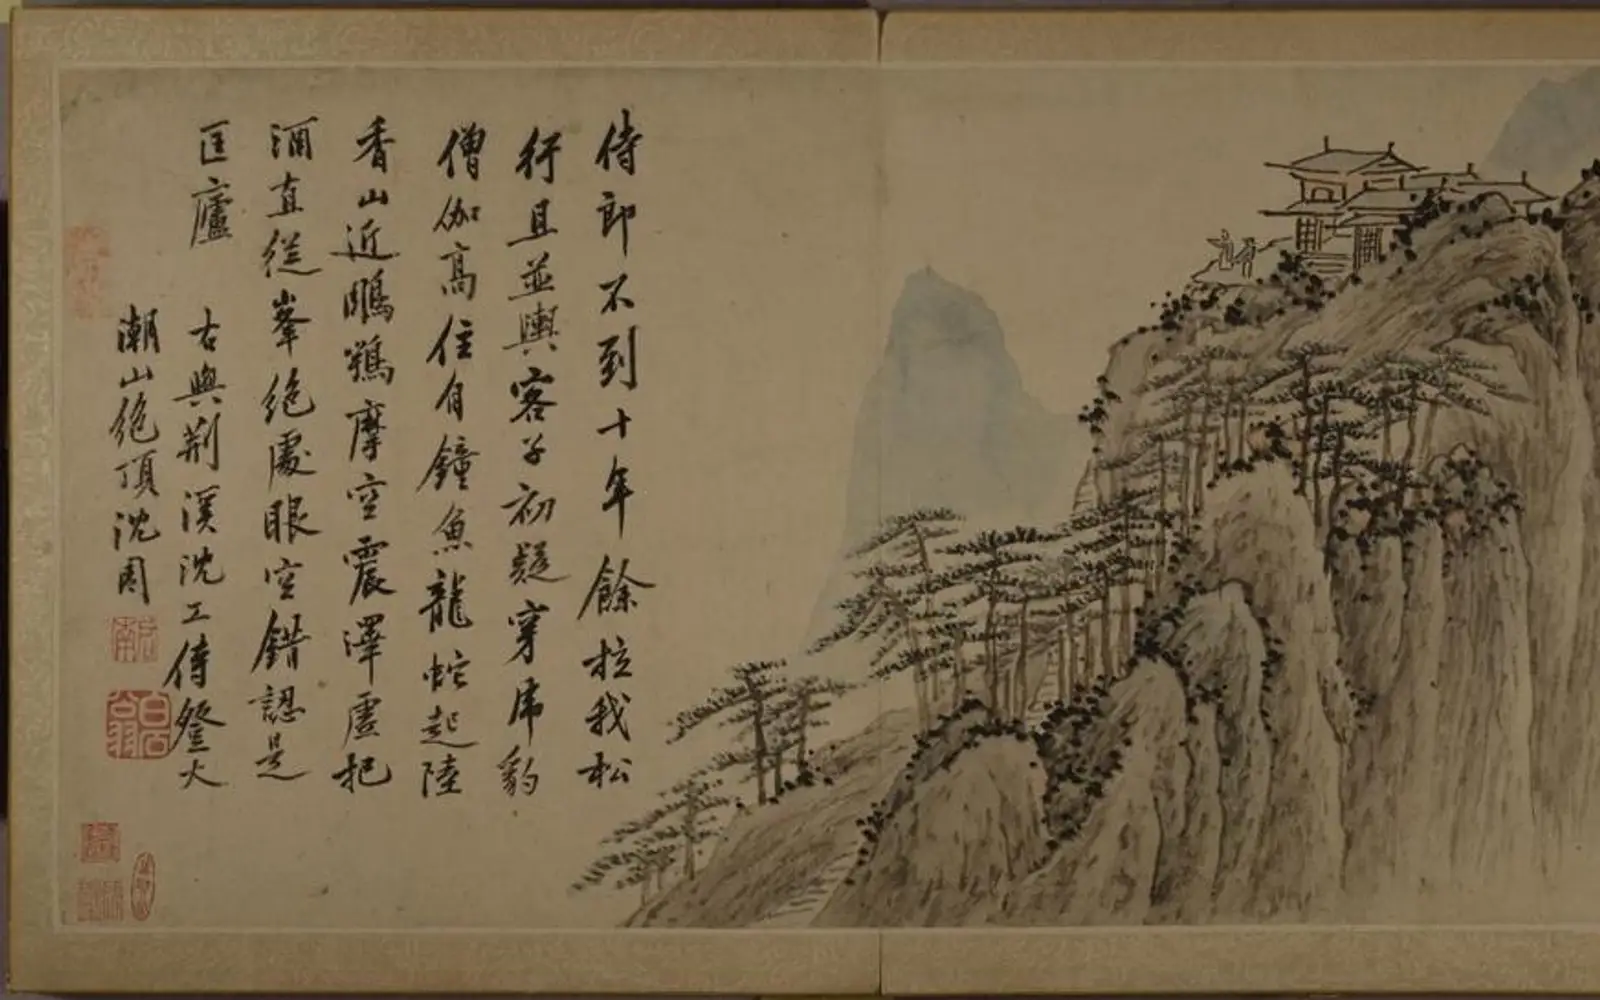 侍郎不到十年餘拉我松
行且並輿客子初疑穿虎豹
僧伽高住有鐘魚龍蛇起陸
香山近鵰鶚摩空震澤虛把
酒直從峯絕處眼空錯認是
匡廬
古與荆溪沈工侍登大
潮山絕頂沈周
啟南
白石翁